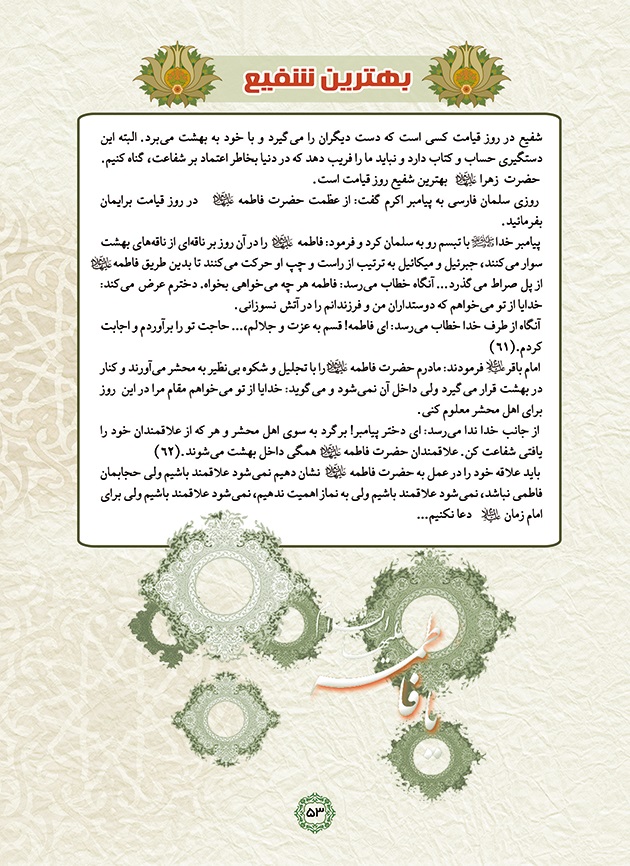 بهترین شفیع
شفیع در روز قیامت کسی است که دست دیگران را می‌گیرد و با خود به بهشت می‌برد. البته این
دستگیری حساب و کتاب دارد و نباید ما را فریب دهد که در دنیا بخاطر اعتماد بر شفاعت، گناه کنیم.
حضرت زهرا علیها السلام بهترین شفیع روز قیامت است.
روزی سلمان فارسی به پیامبر اکرم گفت: از عظمت حضرت فاطمه علیها السلام در روز قیامت برایمان
بفرمائید.
پیامبر خدا صلی الله علیه و آله با تبسم رو به سلمان کرد و فرمود: فاطمه علیها السلام را در آن روز بر ناقه‌ای از ناقه‌های بهشت
سوار می‌کنند، جبرئیل و میکائیل به ترتیب از راست و چپ او حرکت می‌کنند تا بدین طریق فاطمه علیها السلام
از پل صراط می‌گذرد... آنگاه خطاب می‌رسد: فاطمه هر چه می‌خواهی بخواه. دخترم عرض می‌کند:
خدایا از تو می‌خواهم که دوستداران من و فرزندانم را در آتش نسوزانی.
آنگاه از طرف خدا خطاب می‌رسد: ای فاطمه! قسم به عزت و جلالم،... حاجت تو را برآوردم و اجابت
کردم.(۶۱)
امام باقر علیه السلام فرمودند: مادرم حضرت فاطمه علیها السلام را با تجلیل و شکوه بی‌نظیر به محشر می‌آورند و کنار
در بهشت قرار می‌گیرد ولی داخل آن نمی‌شود و می‌گوید: خدایا از تو می‌خواهم مقام مرا در این روز
برای اهل محشر معلوم کنی.
از جانب خدا ندا می‌رسد: ای دختر پیامبر! برگرد به سوی اهل محشر و هر که از علاقمندان خود را
یافتی شفاعت کن. علاقمندان حضرت فاطمه علیها السلام همگی داخل بهشت می‌شوند.(۶۲)
باید علاقه خود را در عمل به حضرت فاطمه علیها السلام نشان دهیم نمی‌شود علاقمند باشیم ولی حجابمان
فاطمی نباشد، نمی‌شود علاقمند باشیم ولی به نماز اهمیت ندهیم، نمی‌شود علاقمند باشیم ولی برای
امام زمان علیه السلام دعا نکنیم...
یا فاطمه
۵۳